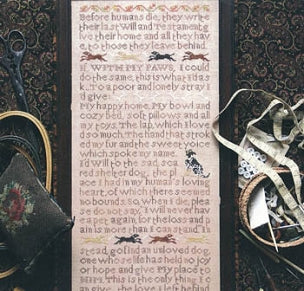 Before humans die, they write
their last Will and Testament, g
ive their home and all they hav
e to those they leave behind.
If, WITH MY PAWS, I could
do the same, this is what I'd as
k. To a poor and lonely stray I
d give:
My happy home. My bowl and
cozy bed, soft pillows and all
my toys. The lap, which I love
d so much. The hand that strok
ed my fur and the sweet voice
which spoke my name.
I'd will to the sad, sca
red shelter dog, the pl
ace I had in my human's loving
heart, of which there seemed
no bounds. So, when I die, pleas
e do not say, I will never hav
e a pet again, for the loss and p
ain is more than I can stand. In
stead, go find an unloved dog,
one whose life has held no joy
or hope and give My place to
him. This is the only thing I c
an give, the love I left behind